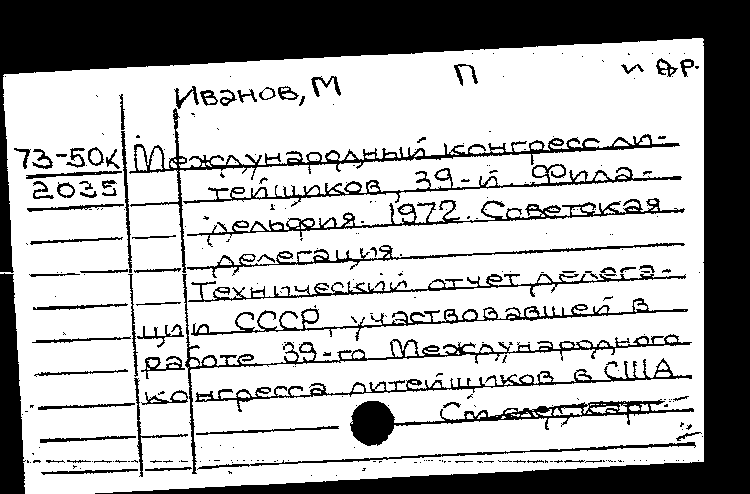 Иванов, М П и др.
73-50к Международный конгресс ли-
2035 тейщиков, 39-й. Фила-
дельфия. 1972. Советская
делегация.
Технический отчет делега-
ции СССР, участвовавшей в
работе 39-го Международного
конгресса литейщиков в США
См. след. карт.